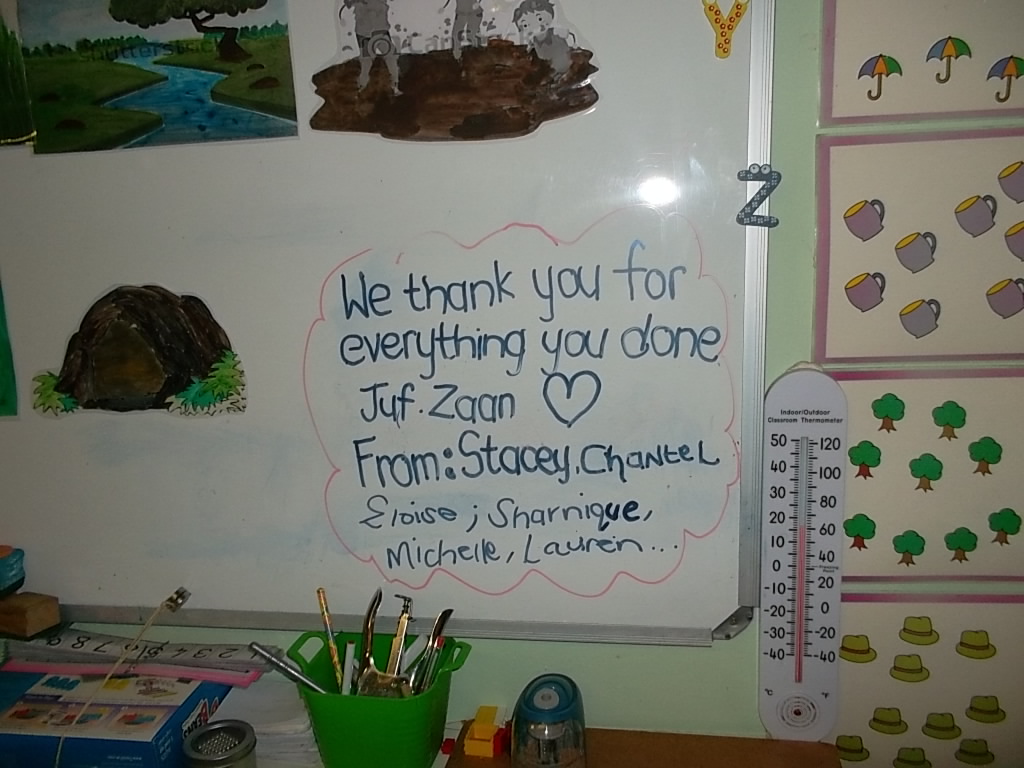 Y
Z
We thank you for
everything you done
Juf. Zaan
From: Stacey, Chantel
Eloise; Sharnique,
Michelle, Lauren...
Indoor/Outdoor
Classroom Thermometer
50 120
40 100
30 80
20 60
10 40
0 20
-10 0
-20 -20
-30 -40
-40
°C °F